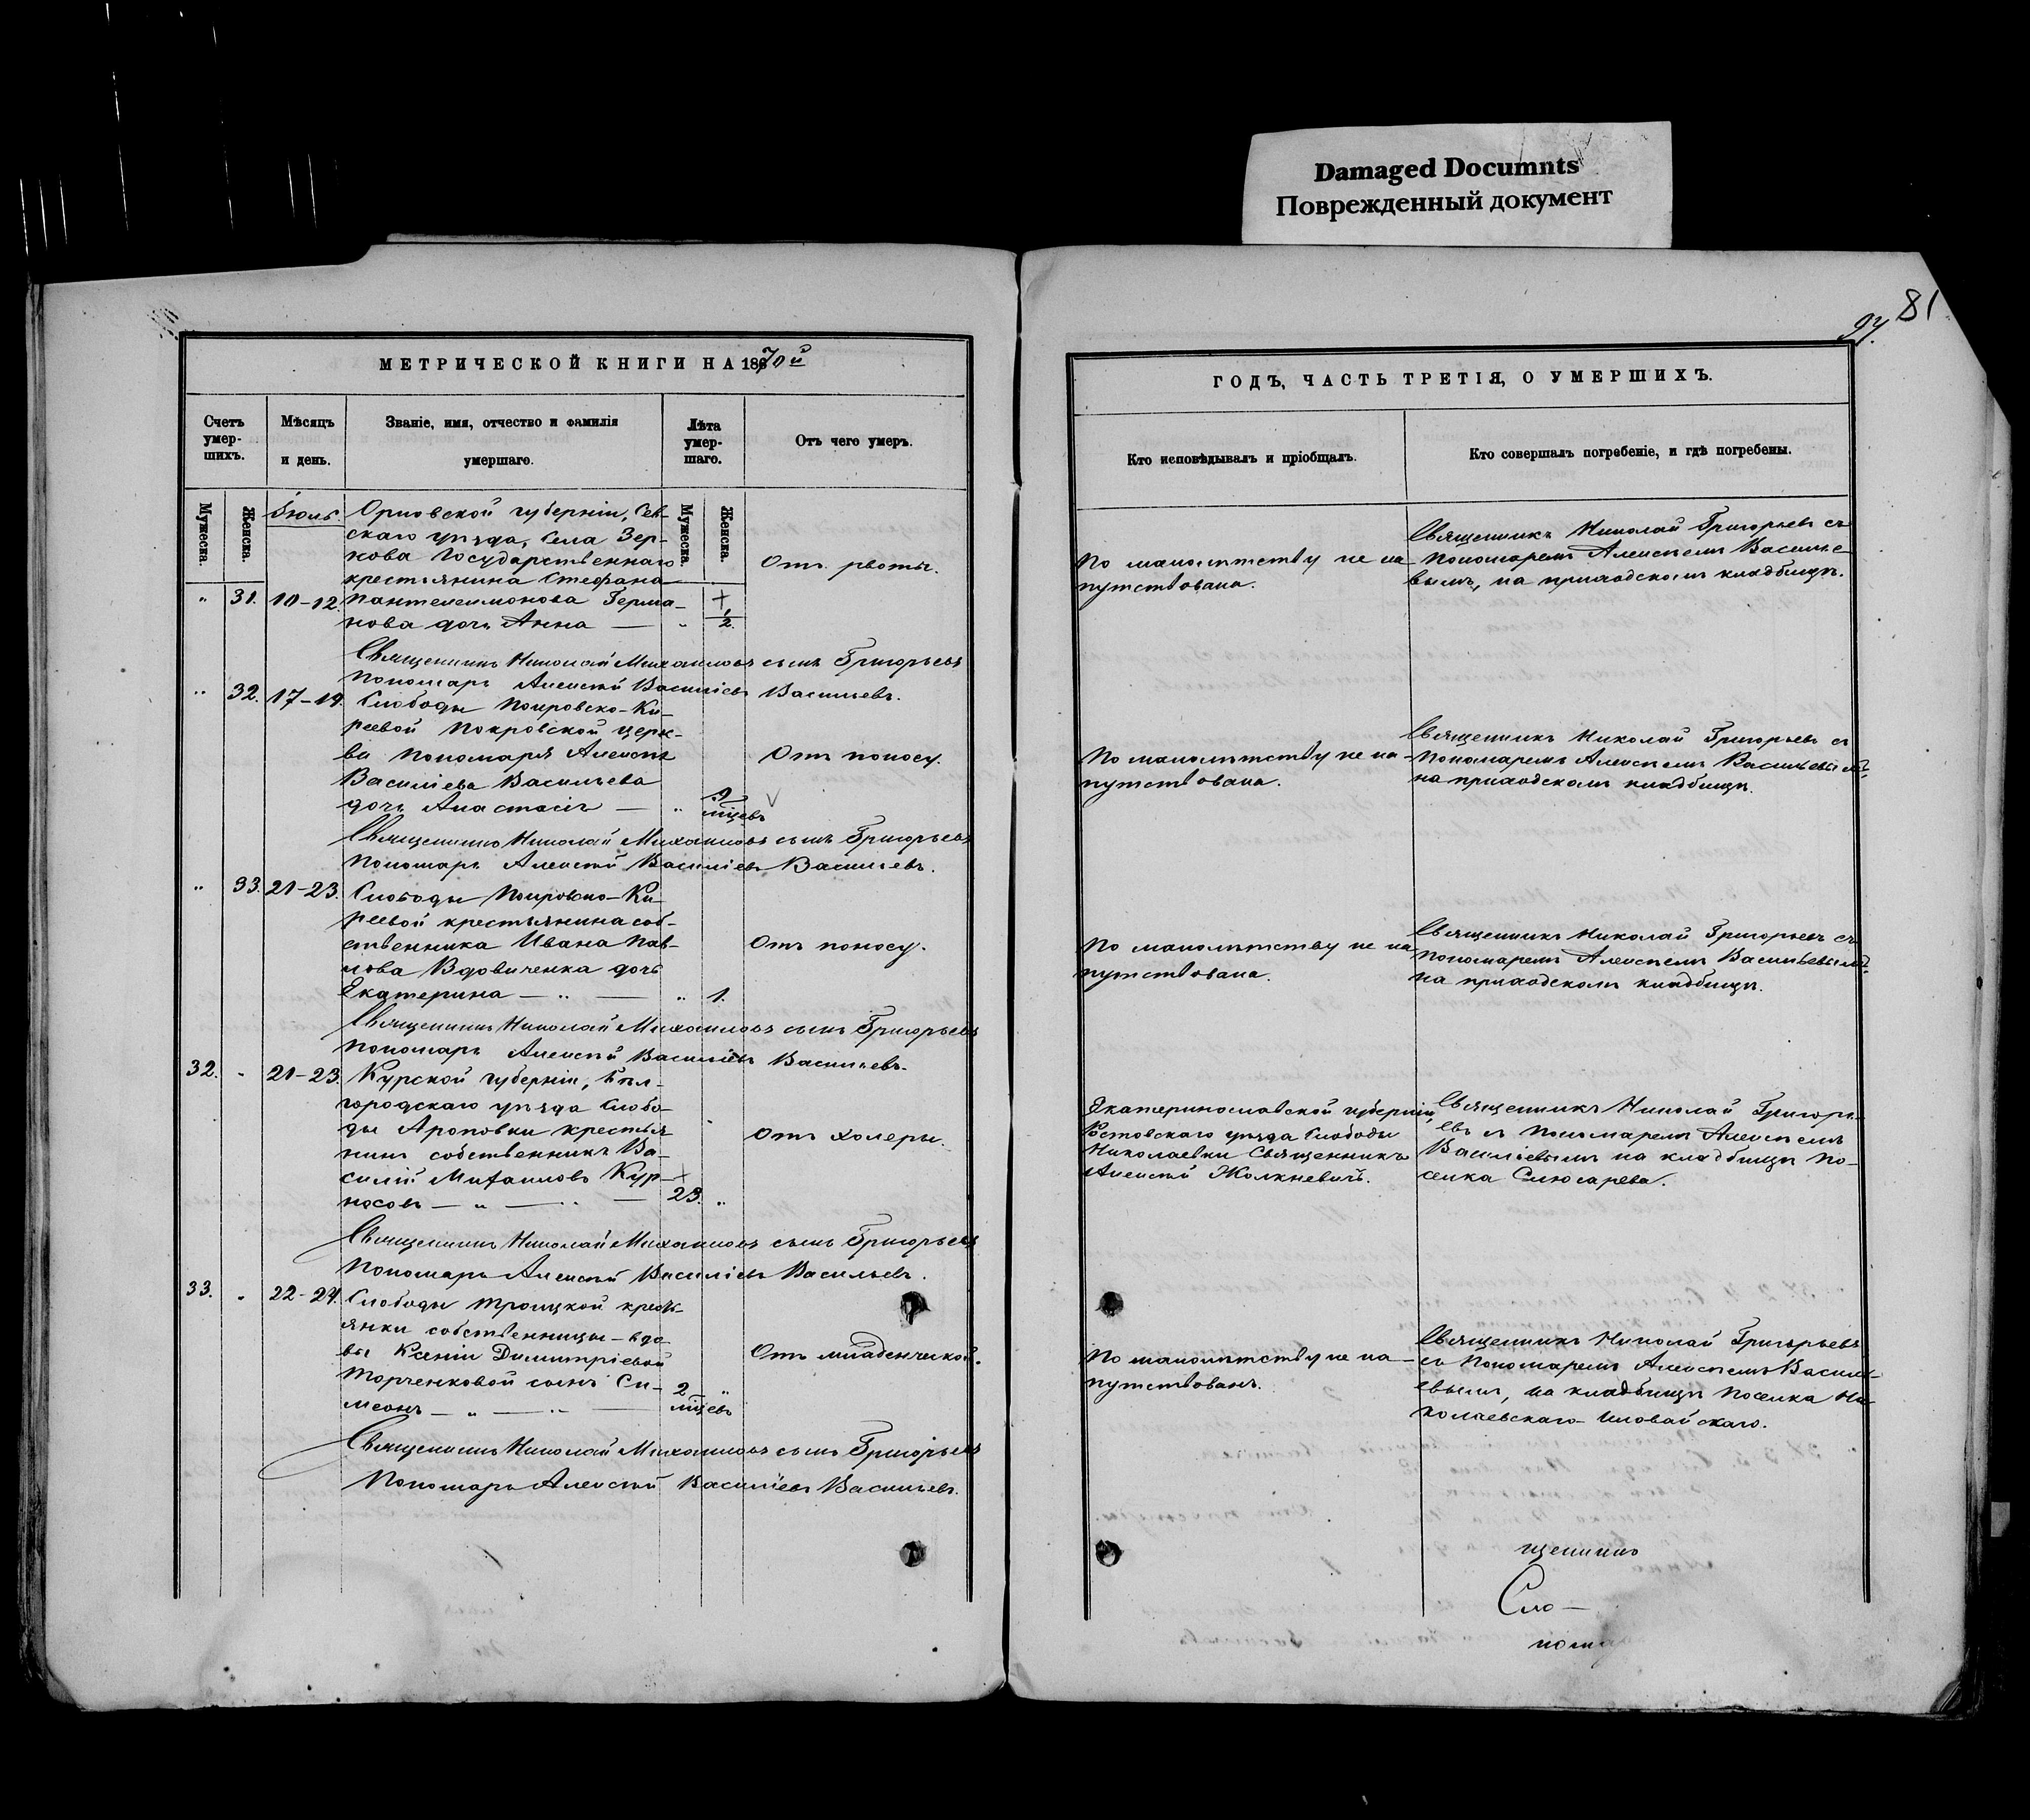 Damaged Documnts
Поврежденный документ
81
97.
МЕТРИЧЕСКОЙ КНИГИ НА 1870й
ГОДЪ, ЧАСТЬ ТРЕТІЯ, О УМЕРШИХЪ.
Счетъ умер-шихъ.
Мѣсяцъ и день.
Званіе, имя, отчество и фамилія умершаго.
Лѣта умер-шаго.
Отъ чего умеръ.
Кто исповѣдывалъ и пріобщалъ.
Кто совершалъ погребеніе, и гдѣ погребены.
Мужеска.
Женска.
Мужеска.
Женска.
Іюль.
Орловской губерніи, Сев-
скаго уѣзда, села Зер-
нова Государственнаго
крестьянина Стефана
" 31. 10-12. Пантелеимонова Герма-
нова дочь Анна — " 1/2.
Отъ рвоты.
По малолѣтству не на-
путствована.
Священникъ Николай Григорьевъ съ
пономаремъ Алексѣемъ Василье-
вымъ, на приходскомъ кладбищѣ.
Священникъ Николай Михаиловъ сынъ Григорьевъ
Пономарь Алексѣй Василіевъ Васильевъ.
" 32. 17-19. Слободы Покровско-Ки-
реевой Покровской церк-
ви пономаря Алексѣя
Василіева Васильева
дочь Анастасія — "
мѣсцевъ
Отъ поносу.
По малолѣтству не на-
путствована.
Священникъ Николай Григорьевъ съ
пономаремъ Алексѣемъ Васильевымъ,
на приходскомъ кладбищѣ.
Священникъ Николай Михаиловъ сынъ Григорьевъ
Пономарь Алексѣй Василіевъ Васильевъ.
" 33. 21-23. Слободы Покровско-Ки-
реевой крестьянина соб-
ственника Ивана Пав-
лова Вдовиченка дочь
Екатерина — " — " 1.
Отъ поносу.
По малолѣтству не на-
путствована.
Священникъ Николай Григорьевъ съ
пономаремъ Алексѣемъ Васильевымъ,
на приходскомъ кладбищѣ.
Священникъ Николай Михаиловъ сынъ Григорьевъ
Пономарь Алексѣй Василіевъ Васильевъ.
32. " 21-23. Курской губерніи, Бѣл-
городскаго уѣзда слобо-
ды крестья
нинъ собственникъ Ва-
силій Михаиловъ Кур-
носовъ — " — " — 23. "
Отъ холеры.
Екатеринославской губерніи,
Ростовскаго уѣзда слободы
Николаевки Священникъ
Алексѣй Жолкневичъ.
Священникъ Николай Григорь-
евъ съ пономаремъ Алексѣемъ
Василіевымъ на кладбищѣ по-
селка Слюсарева.
Священникъ Николай Михаиловъ сынъ Григорьевъ
Пономарь Алексѣй Василіевъ Васильевъ.
33. " 22-24. Слободы Троицкой кресть-
янки собственницы-вдо-
вы Ксеніи Димитріевой
Торченковой сынъ Си-
меонъ — " — " — 2 "
мѣсцевъ
Отъ младенческой.
По малолѣтству не на-
путствованъ.
Священникъ Николай Григорьевъ
съ пономаремъ Алексѣемъ Василь-
евымъ, на кладбищѣ поселка Ни-
колаевскаго-Иловайскаго.
Священникъ Николай Михаиловъ сынъ Григорьевъ
Пономарь Алексѣй Василіевъ Васильевъ.
щенникъ
Сло-